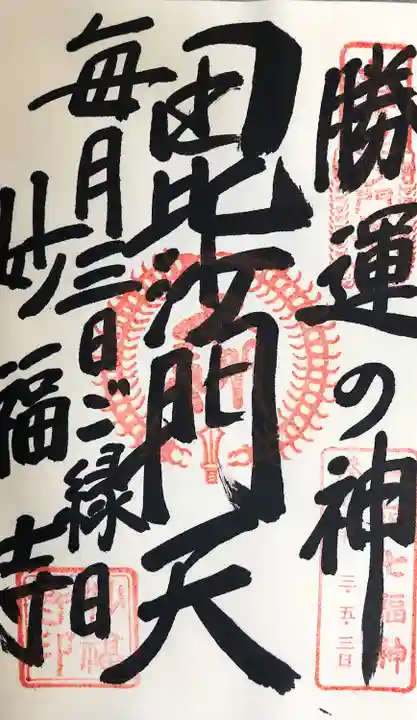 勝運の神
七福神
三・五・三日
毘沙門天
毎月三日ご縁日
妙福寺